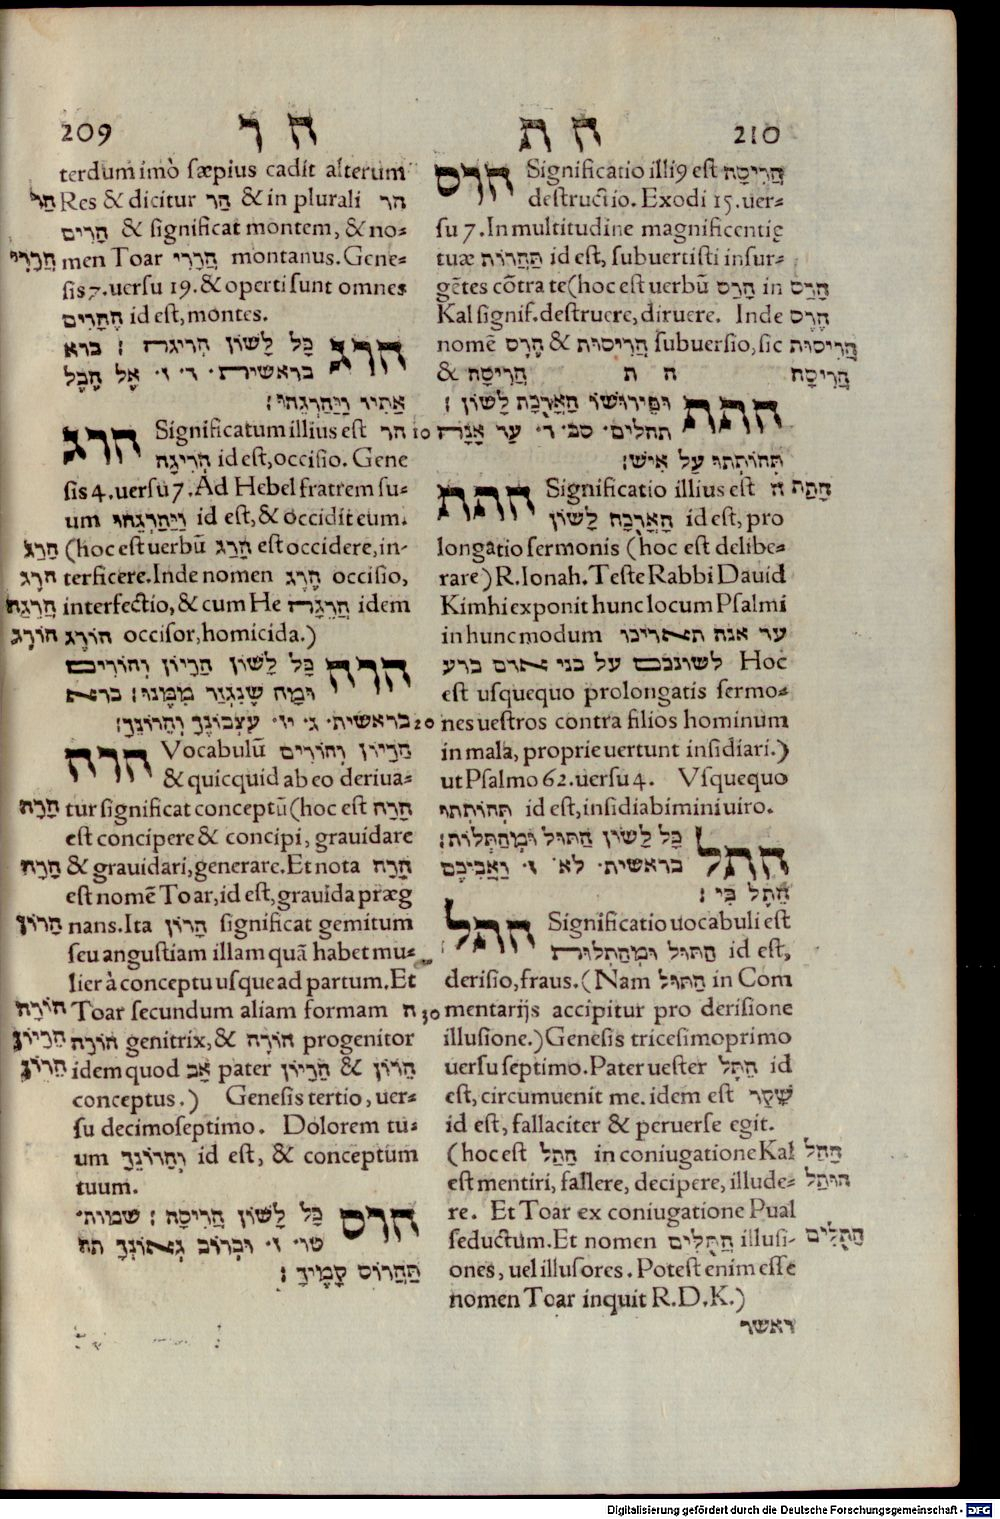 209 ה ר
terdum imò sæpius cadit alterum
Res & dicitur הַר & in plurali הר
הָרִים & significat montem, & no-
men Toar הֲרָרִי montanus. Gene-
sis 7. uersu 19. & operti sunt omnes
הֶהָרִים id est, montes.
הרג כָּל לָשׁוֹן הֲרִיגָה : ברא
בראשית· ד· ז· אֶל הֶבֶל
אָחִיו וַיַּהַרְגֵהוּ:
הרג Significatum illius est הר
הֲרִיגָה id est, occisio. Gene
sis 4. uersu 7. Ad Hebel fratrem su-
um וַיַּהַרְגֵהוּ id est, & occidit eum.
(hoc est uerbū הָרַג est occidere, in-
terficere. Inde nomen הֶרֶג occisio,
interfectio, & cum He הֲרֵגָה idem
הוֹרֵג occisor, homicida.)
הרה כָּל לָשׁוֹן הֵרָיוֹן וְהוֹרִים
וּמַה שֶׁנִגְזַר מִמֶּנּוּ: ברא
בראשית· ג· יז· עִצְּבוֹנֵךְ וְהֵרוֹנֵךְ:
הרה Vocabulū הֵרָיוֹן וְהוֹרִים
& quicquid ab eo deriua-
tur significat conceptū (hoc est הָרָה
est concipere & concipi, grauidare
& grauidari, generare. Et nota הָרָה
est nomē Toar, id est, grauida præg
nans. Ita הֵרוֹן significat gemitum
seu angustiam illam quā habet mu-
lier à conceptu usque ad partum. Et
Toar secundum aliam formam ה
הוֹרָה genitrix, & הוֹרֶה progenitor
idem quod אָב pater הֵרָיוֹן & הֵרוֹן
conceptus.) Genesis tertio, uer-
su decimoseptimo. Dolorem tu-
um וְהֵרוֹנֵךְ id est, & conceptum
tuum.
הרס כָּל לָשׁוֹן הֲרִיסָה : שמות·
טו· ז· וּבְרוֹב גְאוֹנְךָ תה
תַּהֲרוֹס קָמֶיךָ :
הַר
הֲרָרִי
הָרַג
הֶרֶג
הֲרֵגָה
הוֹרֵג
הָרָה
הָרָה
הֵרוֹן
הוֹרָה
הֵרָיוֹן
הֵרוֹן
10
20
30
ה ת 210
הרס Significatio illi9 est הֲרִיסָה
destructio. Exodi 15. uer-
su 7. In multitudine magnificentię
tuæ תַּהֲרוֹס id est, subuertisti insur-
gētes cōtra te (hoc est uerbū הָרַס in
Kal signif. destruere, diruere. Inde
nomē הֶרֶס & הֲרִיסוּת subuersio, sic
& הֲרִיסָה ה ת
התת וּפֵירוּשׁוֹ הַאֲרָכַת לָשׁוֹן :
תהלים· סב· ד· עַד אָנָה
תְּהוֹתְתוּ עַל אִישׁ:
התת Significatio illius est ה
הַאֲרָכַת לָשׁוֹן id est, pro
longatio sermonis (hoc est delibe-
rare) R. Ionah. Teste Rabbi Dauid
Kimhi exponit hunc locum Psalmi
in hunc modum עד אנה תאריכו
לשונכם על בני אדם ברע Hoc
est usquequo prolongatis sermo-
nes uestros contra filios hominum
in mala, proprie uertunt insidiari.)
ut Psalmo 62. uersu 4. Vsquequo
תְּהוֹתְתוּ id est, insidiabimini uiro.
התל כָּל לָשׁוֹן הִתּוּל וּמְהַתְּלוֹת:
בראשית· לא· ז· וַאֲבִיכֶם
הֵתֶל בִּי :
התל Significatio uocabuli est
הִתּוּל וּמְהַתְלוּת id est,
derisio, fraus. (Nam הִתּוּל in Com
mentarijs accipitur pro derisione
illusione.) Genesis tricesimoprimo
uersu septimo. Pater uester הֵתֶל id
est, circumuenit me. idem est שֶׁקֶר
id est, fallaciter & peruerse egit.
(hoc est הָתַל in coniugatione Kal
est mentiri, fallere, decipere, illude-
re. Et Toar ex coniugatione Pual
seductum. Et nomen הֲתֻלִים illusi-
ones, uel illusores. Potest enim esse
nomen Toar inquit R. D. K.)
ואשר
הָרַס
הֶרֶס
הֲרִיסוּת
הֲרִיסָה
הָתַת
הָתַל
הוּתַל
הֲתֻלִים
Digitalisierung gefördert durch die Deutsche Forschungsgemeinschaft - DFG